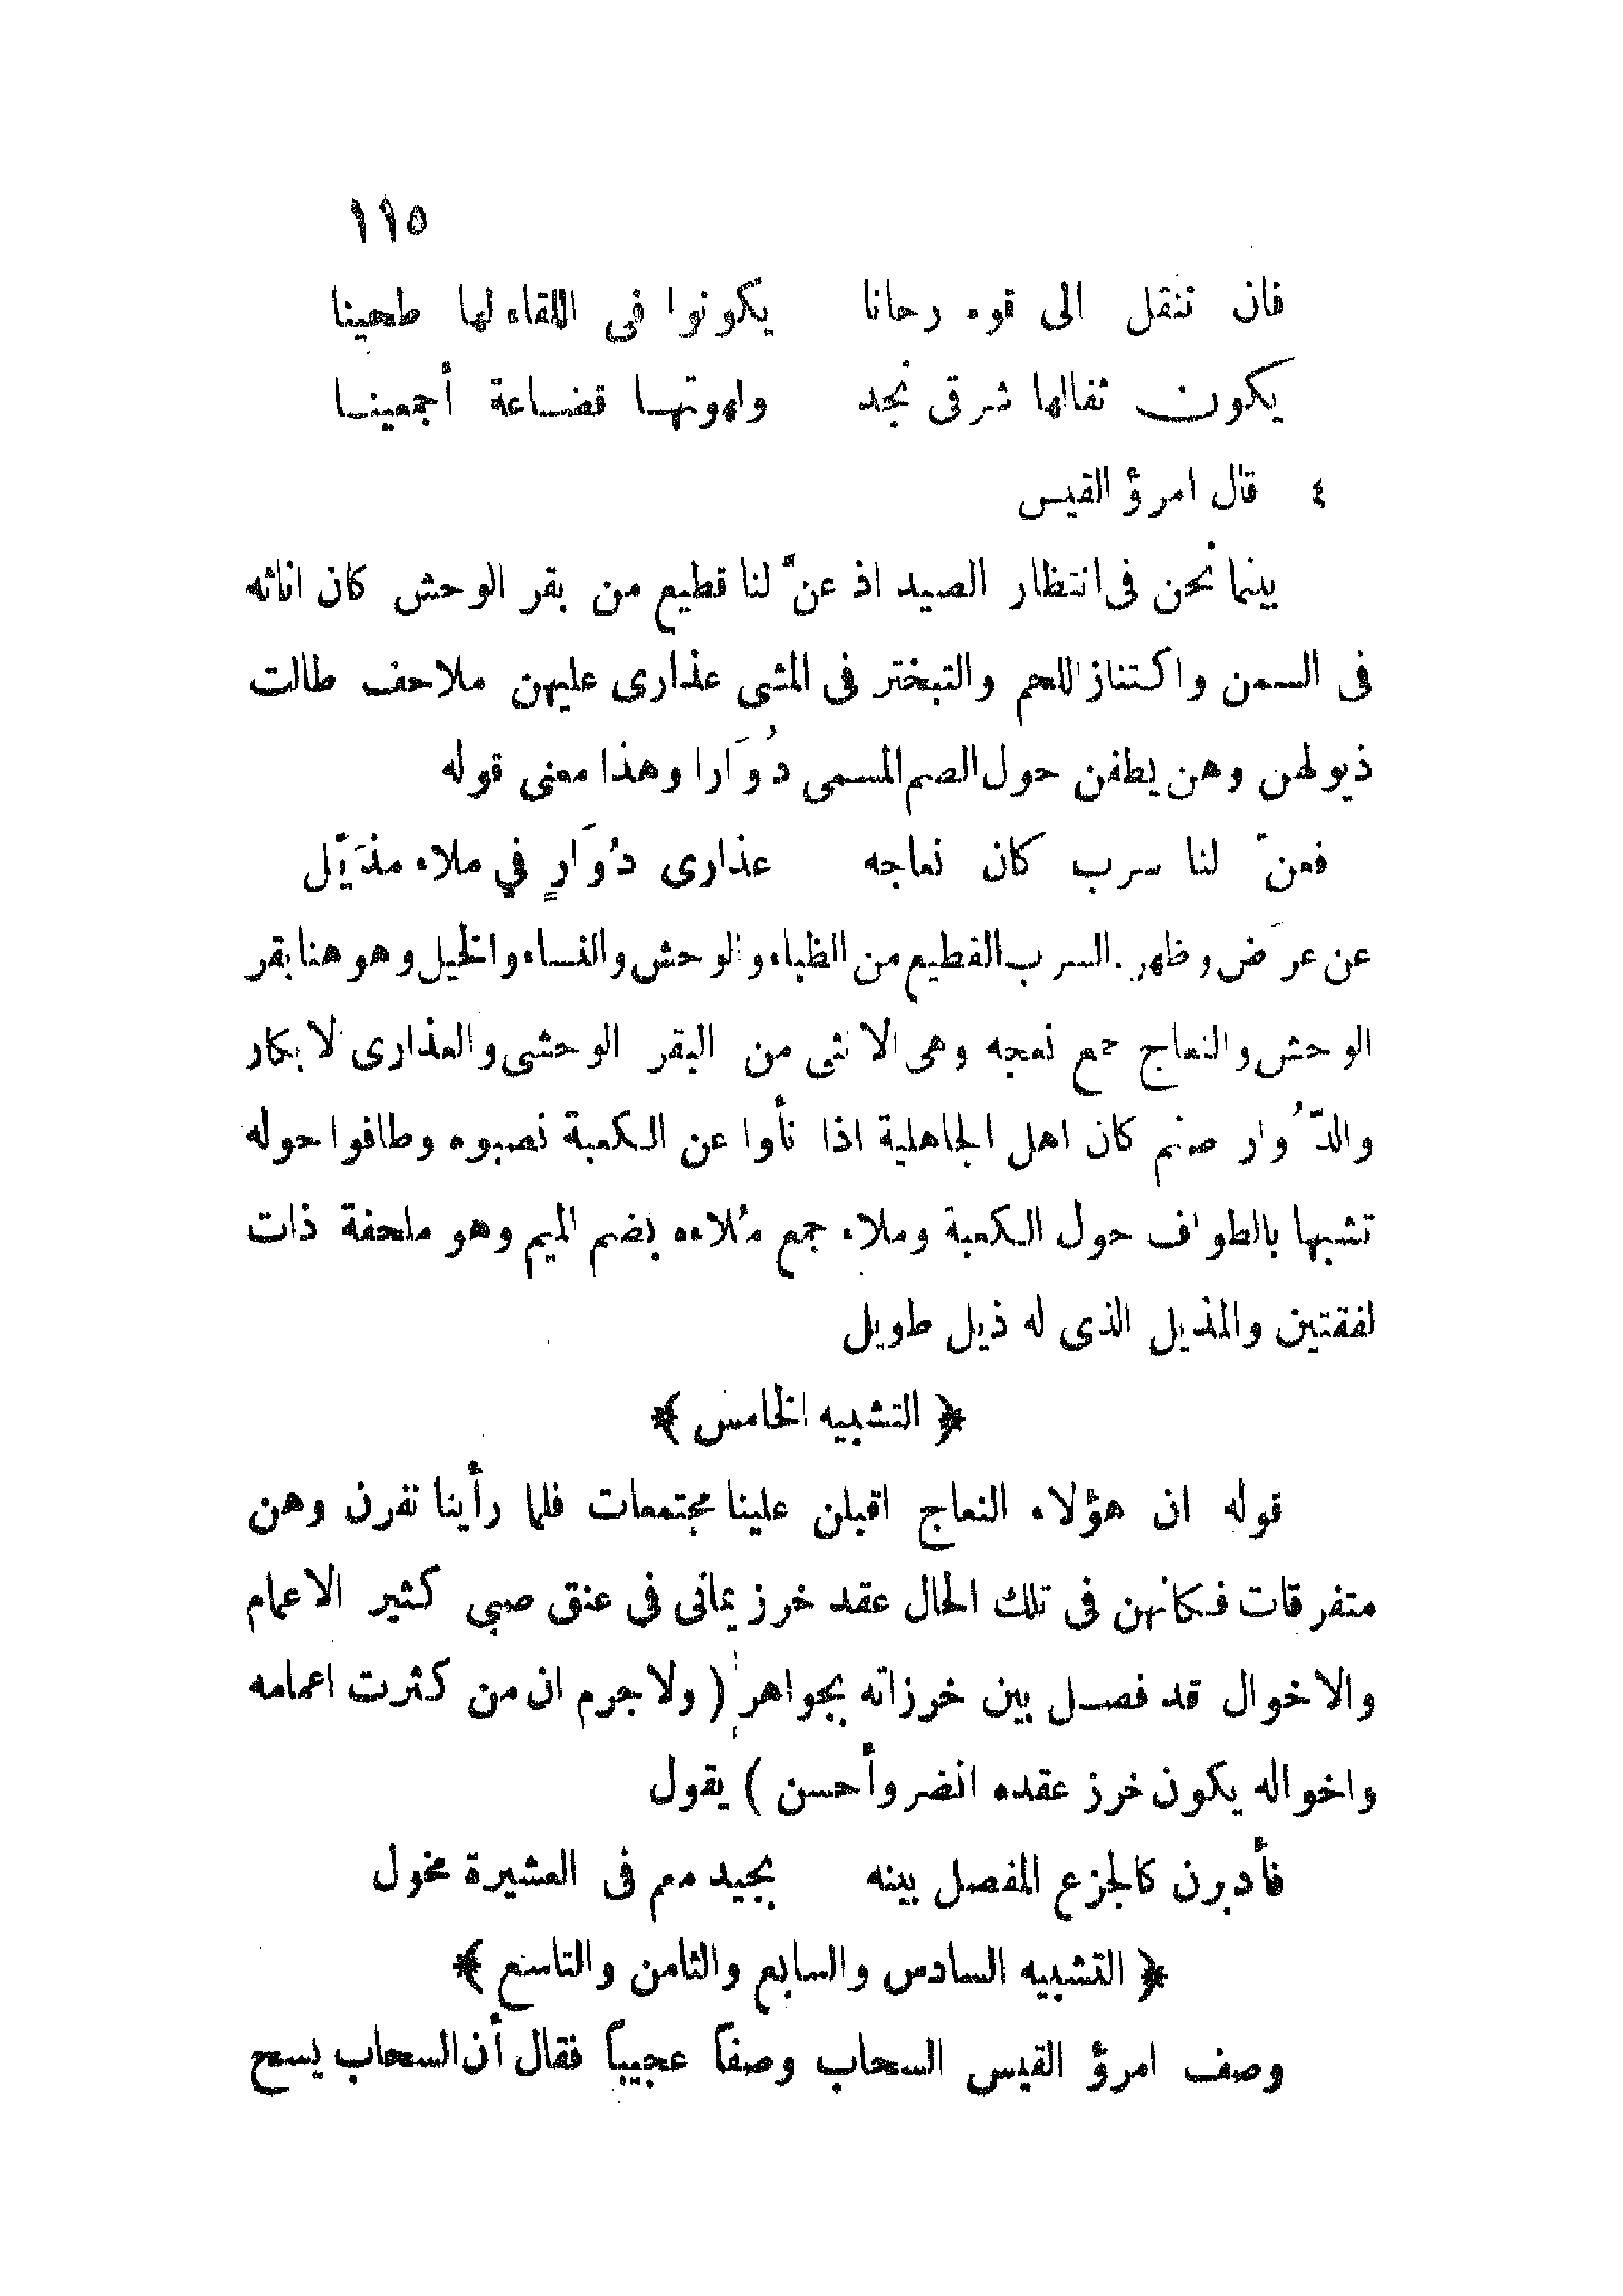 ١١٥
فان ننقل الى قوم رحانا يكونوا فى اللقاء لها طحينا
يكون ثفالها شرقى نجد ولهوتها قضاعة أجمعينا
٤ قال امرؤ القيس
بينما نحن فى انتظار الصيد اذ عنّ لنا قطيع من بقر الوحش كان اناثه
فى السمن واكتناز اللحم والتبختر فى المشى عذارى عليهن ملاحف طالت
ذيولهن وهن يطفن حول الصنم المسمى دُوَارا وهذا معنى قوله
فعنّ لنا سرب كان نعاجه عذارى دُوَارٍ في ملاء مذَيّل
عن عرَض وظهر. السرب القطيع من الظباء والوحش والنساء والخيل وهو هنا بقر
الوحش والنعاج جمع نعجه وهى الانثى من البقر الوحشى والعذارى الابكار
والدّوُار صنم كان اهل الجاهلية اذا نأوا عن الكعبة نصبوه وطافوا حوله
تشبها بالطواف حول الكعبة وملاء جمع مُلاءه بضم الميم وهو ملحفة ذات
لفقتين والمذيل الذى له ذيل طويل
﴿ التشبيه الخامس ﴾
قوله ان هؤلاء النعاج اقبلن علينا مجتمعات فلما رأيننا نفرن وهن
متفرقات فكانهن فى تلك الحال عقد خرز يمانى فى عنق صبى كثير الاعمام
والاخوال قد فصل بين خرزاته بجواهر ( ولا جرم ان من كثرت اعمامه
واخواله يكون خرز عقده انضر وأحسن ) يقول
فأدبرن كالجزع المفصل بينه بجيد معم فى العشيرة مخول
﴿ التشبيه السادس والسابع والثامن والتاسع ﴾
وصف امرؤ القيس السحاب وصفاً عجيباً فقال أن السحاب يسح